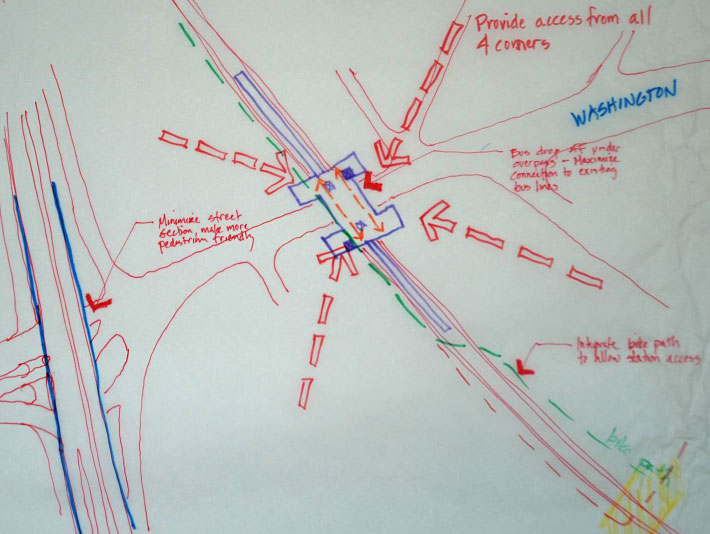 Provide access from all
4 corners
WASHINGTON
Bus drop off under
overpass - Maximize
connection to existing
bus lines
Minimize street
section, make more
pedestrian friendly
Integrate bike path
to allow station access
bike path